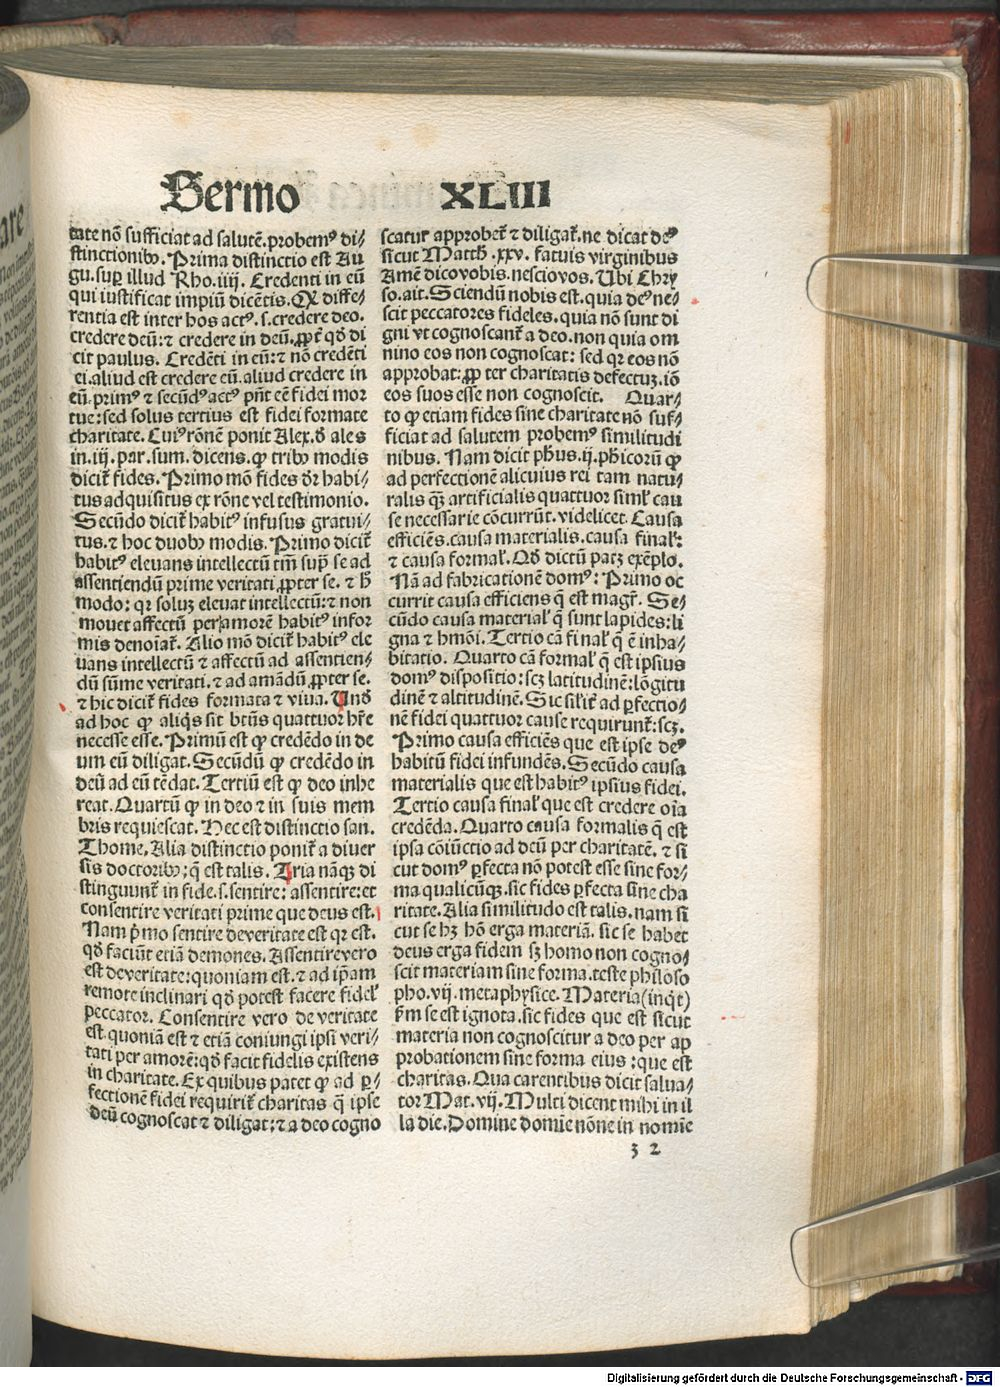 Sermo XLIII
tate nō sufficiat ad salutē. probemꝰ di⸗
stinctionibꝰ. Prima distinctio est Au
gu. suꝑ illud Rho. iiij. Credenti in eū
qui iustificat impiū dicētis. Qꝛ diffe⸗
rentia est inter hos actꝰ. s. credere deo.
credere deū: ⁊ credere in deū. ꝓpt̄ qd̄ di
cit paulus. Credēti in eū: ⁊ nō credēti
ei. aliud est credere eū. aliud credere in
eū. primꝰ ⁊ secūdꝰ actꝰ pn̄t eē fidei mor
tue: sed solus tertius est fidei formate
charitate. Cuiꝰ rōnē ponit Alex. ð ales
in. iij. par. sum. dicens. ꝙ tribꝰ modis
dicit̄ fides. Primo mō fides dr̄ habi⸗
tus adquisitus ex rōne vel testimonio.
Secūdo dicit̄ habitꝰ infusus gratui⸗
tus. ⁊ hoc duobꝰ modis. Primo dicit̄
habitꝰ eleuans intellectū tm̄ supꝛ̄ se ad
assentiendū prime veritati ꝓpter se. ⁊ h̄
modo: qꝛ soluꝫ eleuat intellectū: ⁊ non
mouet affectū per amorē habitꝰ infor
mis denoiat̄. Alio mō dicit̄ habitꝰ ele
uans intellectū ⁊ affectū ad assentien⸗
dū sūme veritati. ⁊ ad amādū ꝓpter se.
⁊ hic dicit̄ fides formata ⁊ viua. Unð
ad hoc ꝙ aliqs̄ sit btūs quattuor hr̄e
necesse esse. Primū est ꝙ credēdo in de
um eū diligat. Secūdū ꝙ credēdo in
deū ad eū tēdat. Tertiū est ꝙ deo inhe
reat. Quartū ꝙ in deo ⁊ in suis mem
bris requiescat. Hec est distinctio san.
Thome. Alia distinctio ponit̄ a diuer
sis doctoribꝰ; q̄ est talis. Tria nāqꝫ di
stinguunt̄ in fide. s. sentire: assentire: et
consentire veritati prime que deus est.
Nam pͥmo sentire de veritate est qꝛ est.
qð faciūt etiā demones. Assentire vero
est de veritate: quoniam est. ⁊ ad ip̄am
remote inclinari qð potest facere fidel̕
peccator. Consentire vero de veritate
est. quoniā est ⁊ etiā coniungi ipsi veri⸗
tati per amorē: qð facit fidelis existens
in charitate. Ex quibus patet ꝙ ad ꝑ⸗
fectionē fidei requirit̄ charitas q̄ ipse
deū cognoscat ⁊ diligat: ⁊ a deo cogno
scatur approbet̄ ⁊ diligat̄. ne dicat deꝰ
sicut Matth. xxv. fatuis virginibus
Amē dico vobis. nescio vos. Ubi Chry
so. ait. Sciendū nobis est. quia deꝰ ne⸗
scit peccatores fideles. quia nō sunt di
gni vt cognoscant̄ a deo. non quia om
nino eos non cognoscat: sed qꝛ eos nō
approbat: ꝓpter charitatis defectuꝫ. iō
eos suos esse non cognoscit. Quar⸗
to ꝙ etiam fides sine charitate nō suf⸗
ficiat ad salutem probemꝰ similitudi
nibus. Nam dicit phus. ij. phicorū ꝙ
ad perfectionē alicuius rei tam natu⸗
ralis qꝫ artificialis quattuor siml̕ cau
se necessarie cōcurrūt. videlicet. Causa
efficiēs. causa materialis. causa final̕:
⁊ causa formal̕. Qð dictū patꝫ exēplo.
Nā ad fabricationē domꝰ: Primo oc
currit causa efficiens q̄ est magr̄. Se⸗
cūdo causa material̕ q̄ sunt lapides: li
gna ⁊ hmōi. Tertio cā final̕ q̄ ē inha⸗
bitatio. Quarto cā formal̕ q̄ est ipsius
domꝰ dispositio: scꝫ latitudinē: lōgitu
dinē ⁊ altitudinē. Sic sil̕it̄ ad ꝑfectio⸗
nē fidei quattuor cause requirunt̄: scꝫ.
Primo causa efficiēs que est ipse deꝰ
habitū fidei infundēs. Secūdo causa
materialis que est habitꝰ ipsius fidei.
Tertio causa final̕ que est credere oīa
credēda. Quarto causa formalis q̄ est
ipsa cōiūctio ad deū per charitatē. ⁊ si
cut domꝰ ꝑfecta nō potest esse sine for⸗
ma qualicūqꝫ. sic fides ꝑfecta sine cha
ritate. Alia similitudo est talis. nam si
cut se hꝫ hō erga materiā. sic se habet
deus erga fidem sꝫ homo non cogno⸗
scit materiam sine forma. teste philoso
pho. vij. metaphysice. Materia (inqͥt)
ẜm se est ignota. sic fides que est sicut
materia non cognoscitur a deo per ap
probationem sine forma eius: que est
charitas. Qua carentibus dicit salua⸗
tor Mat. vij. Multi dicent mihi in il
la die. Domine domie nōne in nomie
3 2
Digitalisierung gefördert durch die Deutsche Forschungsgemeinschaft - DFG